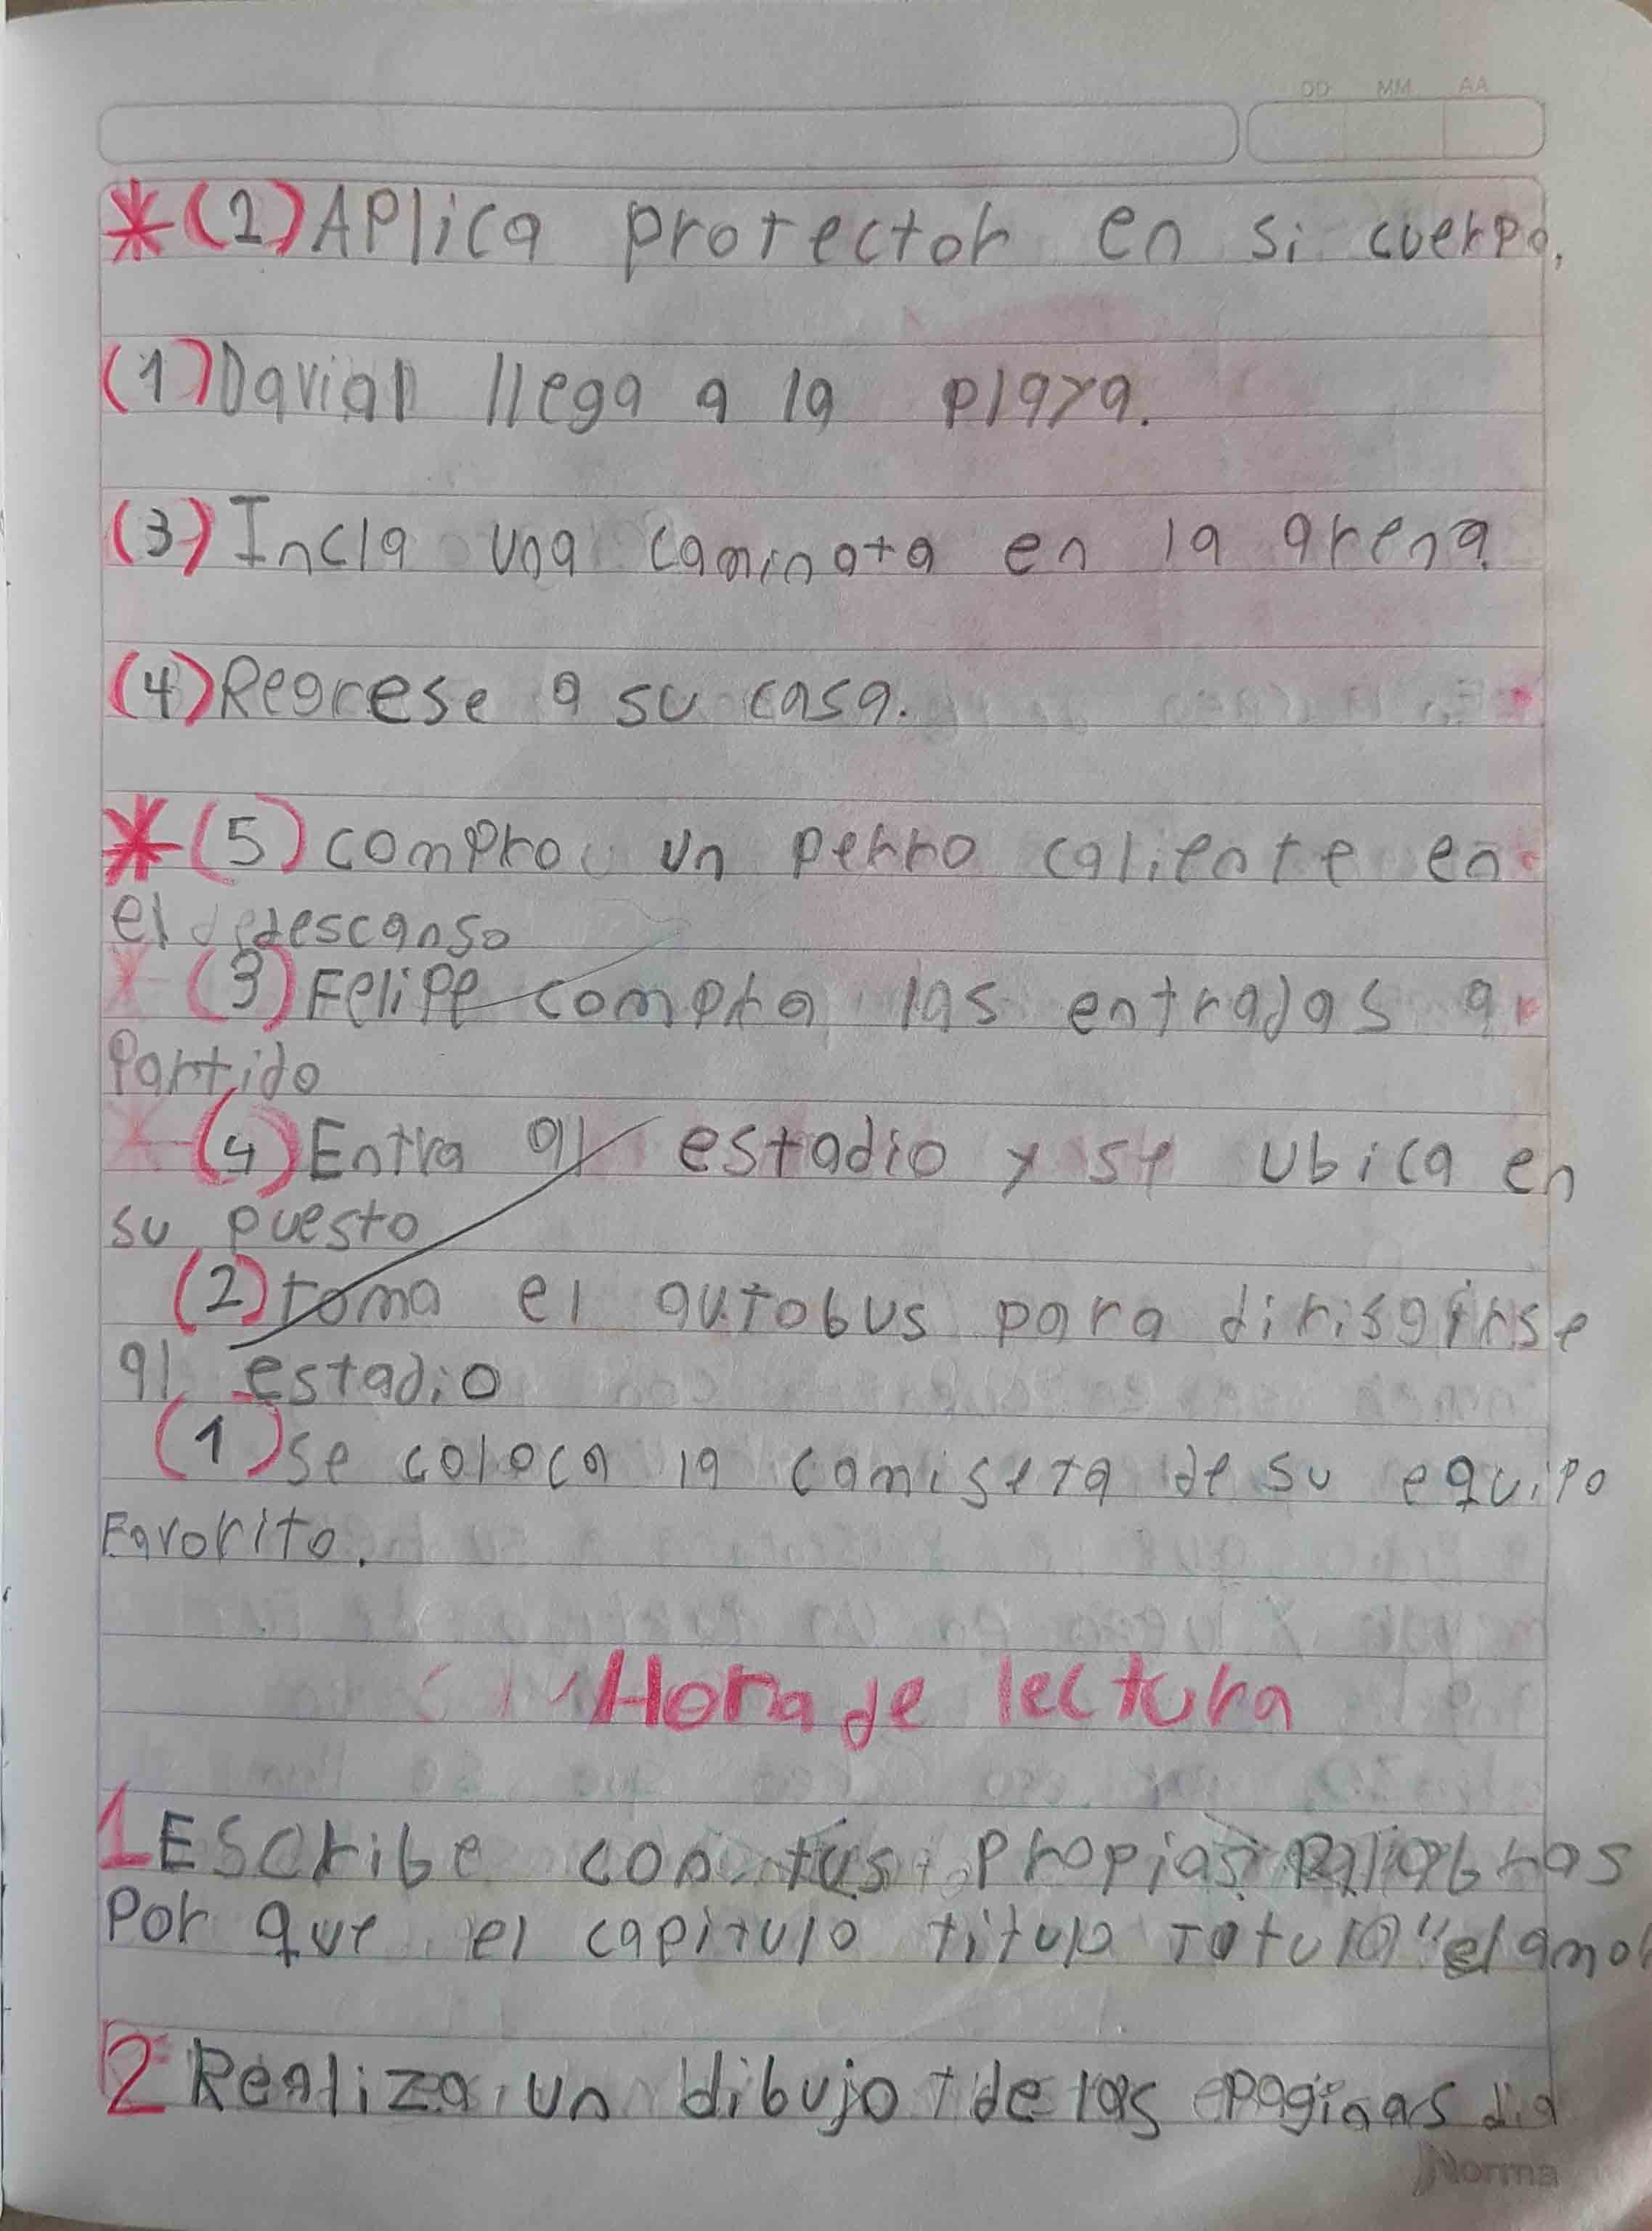 DD MM AA
*(2) Aplica protector en si cuerpo.
(1) Davian llega a la playa.
(3) Incla una caminata en la arena.
(4) Regrese a su casa.
*(5) compro un perro caliente en
el descanso
*(3) Felipe compra las entradas a
Partido
*(4) Entra al estadio y se ubica en
su puesto
(2) toma el autobus para dirisgirse
al estadio
(1) se coloca la camiseta de su equipo
Favorito.
Hora de lectura
1 Escribe con tus propias palabras
Por que el capitulo titulo "el amor
2 Realiza un dibujo de las paginas
Norma